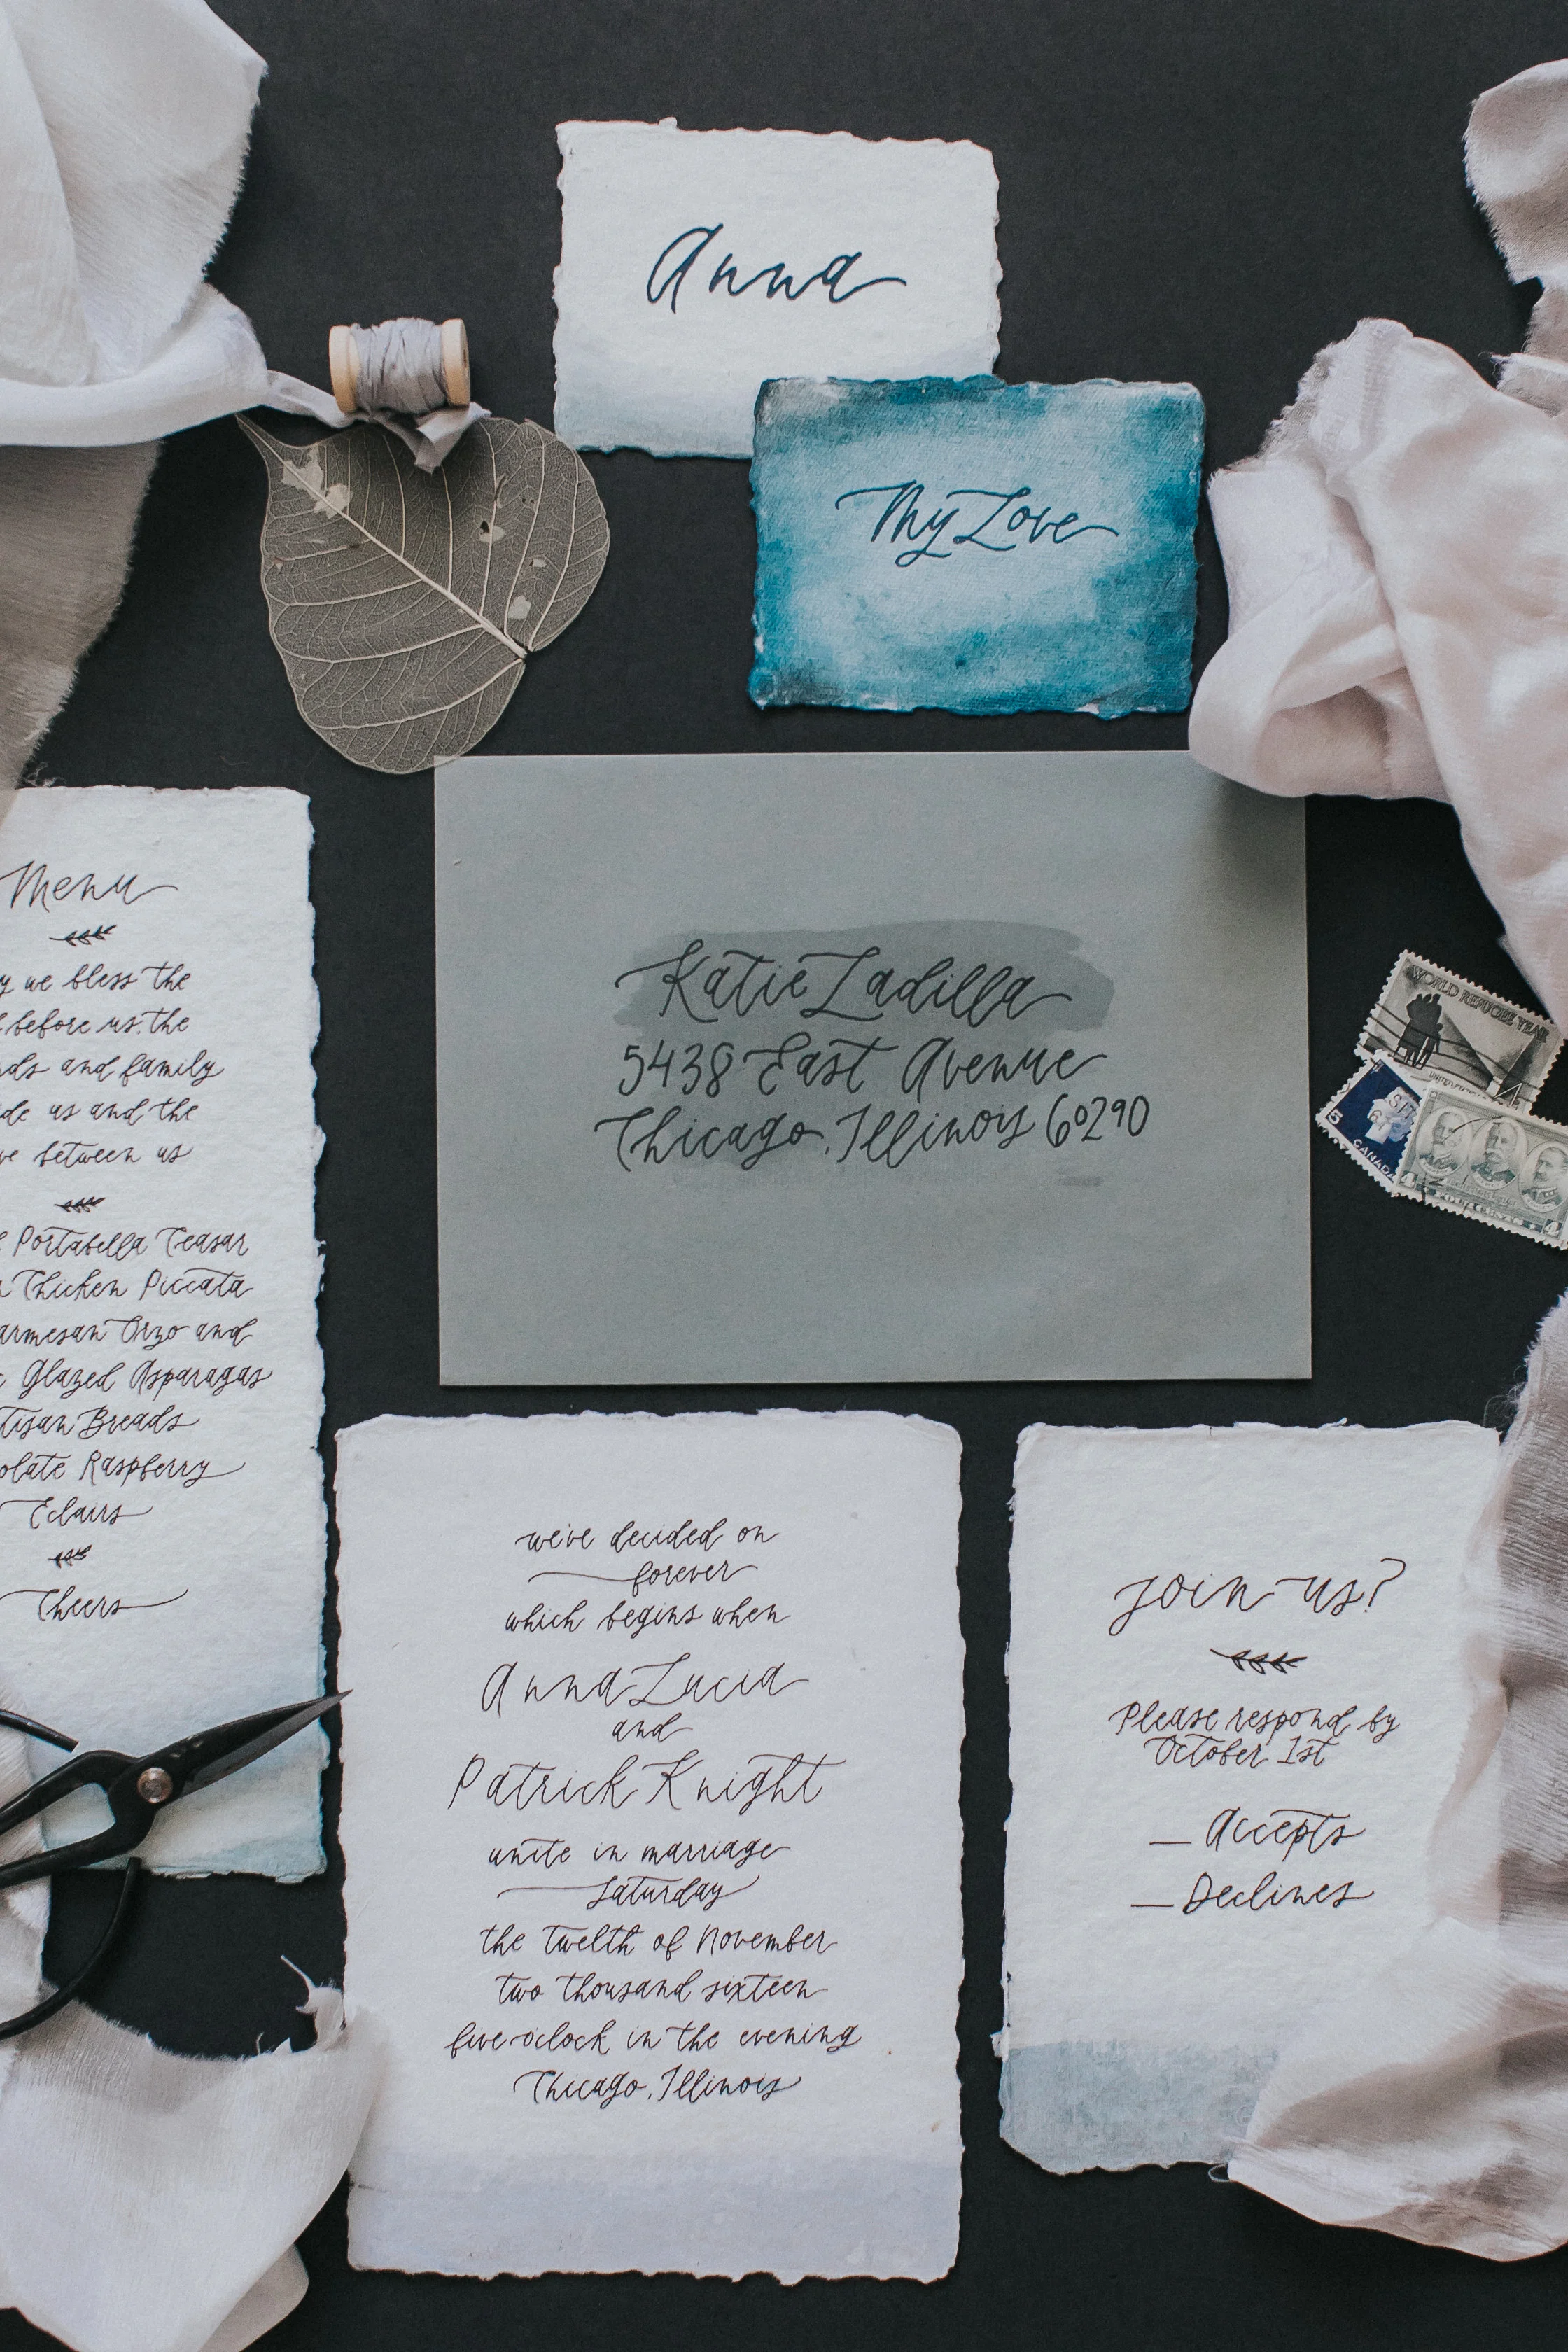 Anna
My Love
Katie Ladilla
5438 East Avenue
Chicago, Illinois 60290
WORLD REFUGEE YEAR
5
CANADA
4
4
Menu
we bless the
before us, the
and family
us and the
between us
Portabella Teasar
Chicken Piccata
Orzo and
Glazed Asparagas
Breads
Raspberry
Eclairs
Cheers
we've decided on
forever
which begins when
Anna Lucia
and
Patrick Knight
unite in marriage
Saturday
the twelth of November
two thousand sixteen
five o'clock in the evening
Chicago, Illinois
join us?
Please respond by
October 1st
Accepts
Declines